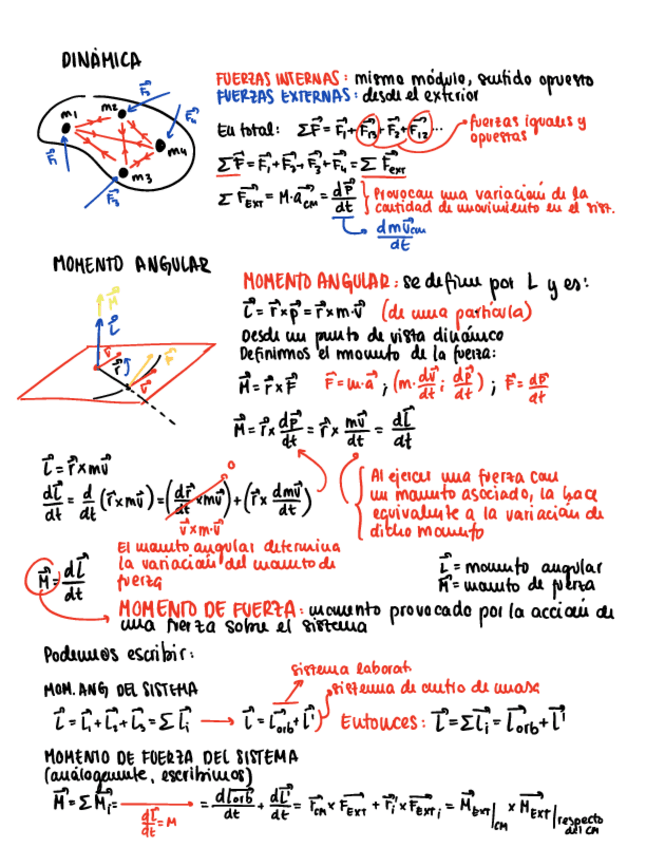 DINÁMICA
m1 m2 m3 m4
F⃗1 F⃗2 F⃗3 F⃗4
FUERZAS INTERNAS: mismo módulo, sentido opuesto
FUERZAS EXTERNAS: desde el exterior
En total: ΣF⃗ = F⃗1 + F⃗13 + F⃗2 + F⃗12 ...
fuerzas iguales y
opuestas
ΣF⃗ = F⃗1 + F⃗2 + F⃗3 + F⃗4 = Σ F⃗EXT
Σ F⃗EXT = M·a⃗CM = dp⃗/dt
Provocan una variación de la
cantidad de movimiento en el sist.
dmv⃗cm/dt
MOMENTO ANGULAR
M⃗
L⃗
r⃗ F⃗ v⃗
MOMENTO ANGULAR: se define por L y es:
L⃗ = r⃗ × p⃗ = r⃗ × m·v⃗ (de una partícula)
Desde un punto de vista dinámico
Definimos el momento de la fuerza:
M⃗ = r⃗ × F⃗ F⃗ = m·a⃗ ; (m·dv⃗/dt ; dp⃗/dt) ; F⃗ = dp⃗/dt
M⃗ = r⃗ × dp⃗/dt = r⃗ × mv⃗/dt = dL⃗/dt
L⃗ = r⃗ × mv⃗
dL⃗/dt = d/dt (r⃗ × mv⃗) = (dr⃗/dt × mv⃗) + (r⃗ × dmv⃗/dt)
0
v⃗ × m·v⃗
Al ejercer una fuerza con
un momento asociado, la hace
equivalente a la variación de
dicho momento
El momento angular determina
la variación del momento de
fuerza
M⃗ = dL⃗/dt
L⃗ = momento angular
M⃗ = momento de fuerza
MOMENTO DE FUERZA: momento provocado por la acción de
una fuerza sobre el sistema
Podemos escribir:
sistema laborat.
MOM. ANG DEL SISTEMA
sistema de centro de masa
L⃗ = L⃗1 + L⃗2 + L⃗3 = Σ L⃗i → L⃗ = L⃗orb + L⃗' Entonces: L⃗ = ΣL⃗i = L⃗orb + L⃗'
MOMENTO DE FUERZA DEL SISTEMA
(análogamente, escribimos)
M⃗ = Σ M⃗i = → = dL⃗orb/dt + dL⃗'/dt = r⃗CM × F⃗EXT + r⃗i' × F⃗EXTi = M⃗EXT|CM × M⃗EXT|respecto del CM
dL⃗/dt = M